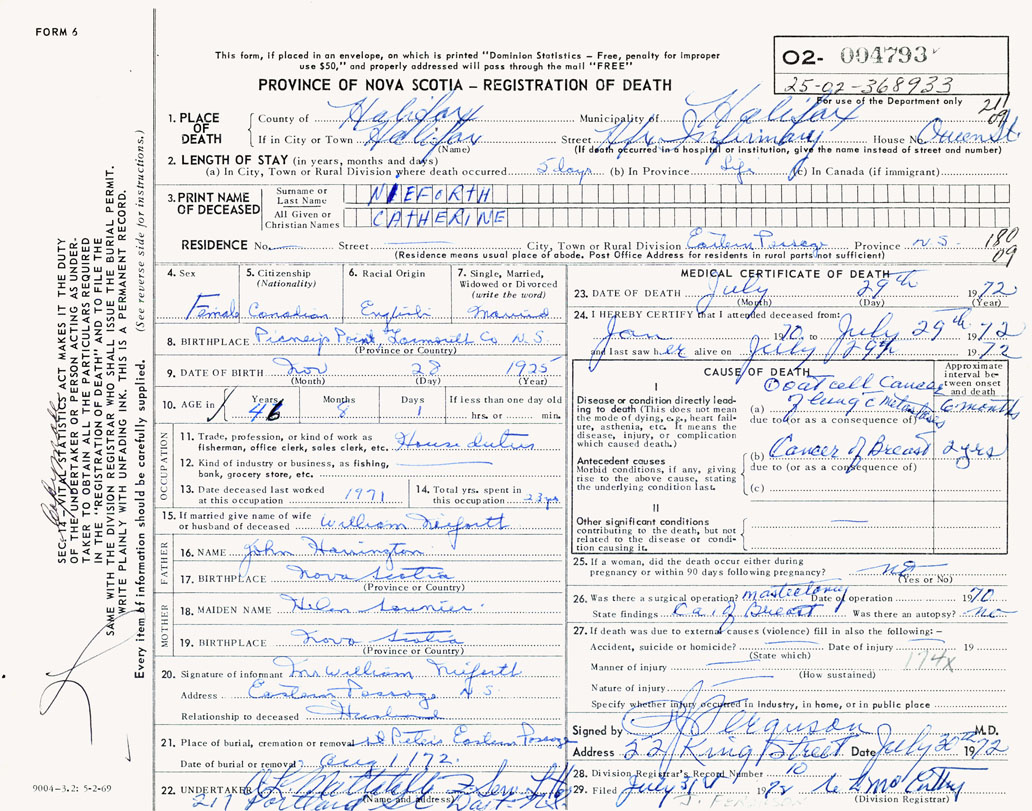 FORM 6
This form, if placed in an envelope, on which is printed "Dominion Statistics – Free, penalty for improper
use $50," and properly addressed will pass through the mail "FREE"
PROVINCE OF NOVA SCOTIA – REGISTRATION OF DEATH
O2- 004793
25-02-368933
For use of the Department only
1. PLACE OF DEATH
County of Halifax Municipality of Halifax
If in City or Town Halifax Street Hfx Infirmary House No. Queen St.
(Name) (If death occurred in a hospital or institution, give the name instead of street and number)
2. LENGTH OF STAY (in years, months and days)
(a) In City, Town or Rural Division where death occurred 5 days (b) In Province Life (c) In Canada (if immigrant)
3. PRINT NAME OF DECEASED
Surname or Last Name NIEFORTH
All Given or Christian Names CATHERINE
RESIDENCE No. Street City, Town or Rural Division Eastern Passage Province N.S.
180
09
(Residence means usual place of abode. Post Office Address for residents in rural parts not sufficient)
4. Sex Female
5. Citizenship (Nationality) Canadian
6. Racial Origin English
7. Single, Married, Widowed or Divorced (write the word) Married
8. BIRTHPLACE Point, Co N.S.
(Province or Country)
9. DATE OF BIRTH Nov 28 1925
(Month) (Day) (Year)
10. AGE in Years 46 Months 8 Days 1 If less than one day old hrs. or min.
OCCUPATION
11. Trade, profession, or kind of work as fisherman, office clerk, sales clerk, etc. House duties
12. Kind of industry or business, as fishing, bank, grocery store, etc.
13. Date deceased last worked at this occupation 1971
14. Total yrs. spent in this occupation 23 yrs
15. If married give name of wife or husband of deceased William Nieforth
FATHER
16. NAME John Harrington
17. BIRTHPLACE Nova Scotia
(Province or Country)
MOTHER
18. MAIDEN NAME Helen
19. BIRTHPLACE Nova Scotia
(Province or Country)
20. Signature of informant Mr William Nieforth
Address Eastern Passage N.S.
Relationship to deceased Husband
21. Place of burial, cremation or removal St Peters Eastern Passage
Date of burial or removal Aug 1 1972
22. UNDERTAKER & Son
217 Portland St. Dart. N.S.
(Name and address)
MEDICAL CERTIFICATE OF DEATH
23. DATE OF DEATH July 29th 1972
(Month) (Day) (Year)
24. I HEREBY CERTIFY that I attended deceased from:
Jan 1970 to July 29th 1972
and last saw her alive on July 29th 1972
CAUSE OF DEATH
Approximate interval between onset and death
I
Disease or condition directly leading to death (This does not mean the mode of dying, e.g., heart failure, asthenia, etc. It means the disease, injury, or complication which caused death.)
(a) Oat cell Cancer of lung c Metastasis 6 months
due to (or as a consequence of)
Antecedent causes
Morbid conditions, if any, giving rise to the above cause, stating the underlying condition last.
(b) Cancer of Breast 2 yrs
due to (or as a consequence of)
(c)
II
Other significant conditions contributing to the death, but not related to the disease or condition causing it.
25. If a woman, did the death occur either during pregnancy or within 90 days following pregnancy? no
(Yes or No)
26. Was there a surgical operation? mastectomy Date of operation 1970
State findings Ca. of Breast Was there an autopsy? no
27. If death was due to external causes (violence) fill in also the following: –
Accident, suicide or homicide? Date of injury 19
(State which)
174x
Manner of injury
(How sustained)
Nature of injury
Specify whether injury occurred in industry, in home, or in public place
Signed by Ferguson M.D.
Address 22 King Street Date July 30th 1972
28. Division Registrar's Record Number 10
29. Filed July 31st 1972
J. FERGUSON
(Division Registrar)
SEC. 14–VITAL STATISTICS ACT MAKES IT THE DUTY
OF THE UNDERTAKER OR PERSON ACTING AS UNDER-
TAKER TO OBTAIN ALL THE PARTICULARS REQUIRED
IN THE "REGISTRATION OF DEATH" AND TO FILE THE
SAME WITH THE DIVISION REGISTRAR WHO SHALL ISSUE THE BURIAL PERMIT.
WRITE PLAINLY WITH UNFADING INK. THIS IS A PERMANENT RECORD.
Every item of information should be carefully supplied. (See reverse side for instructions.)
9004-3.2: 5-2-69